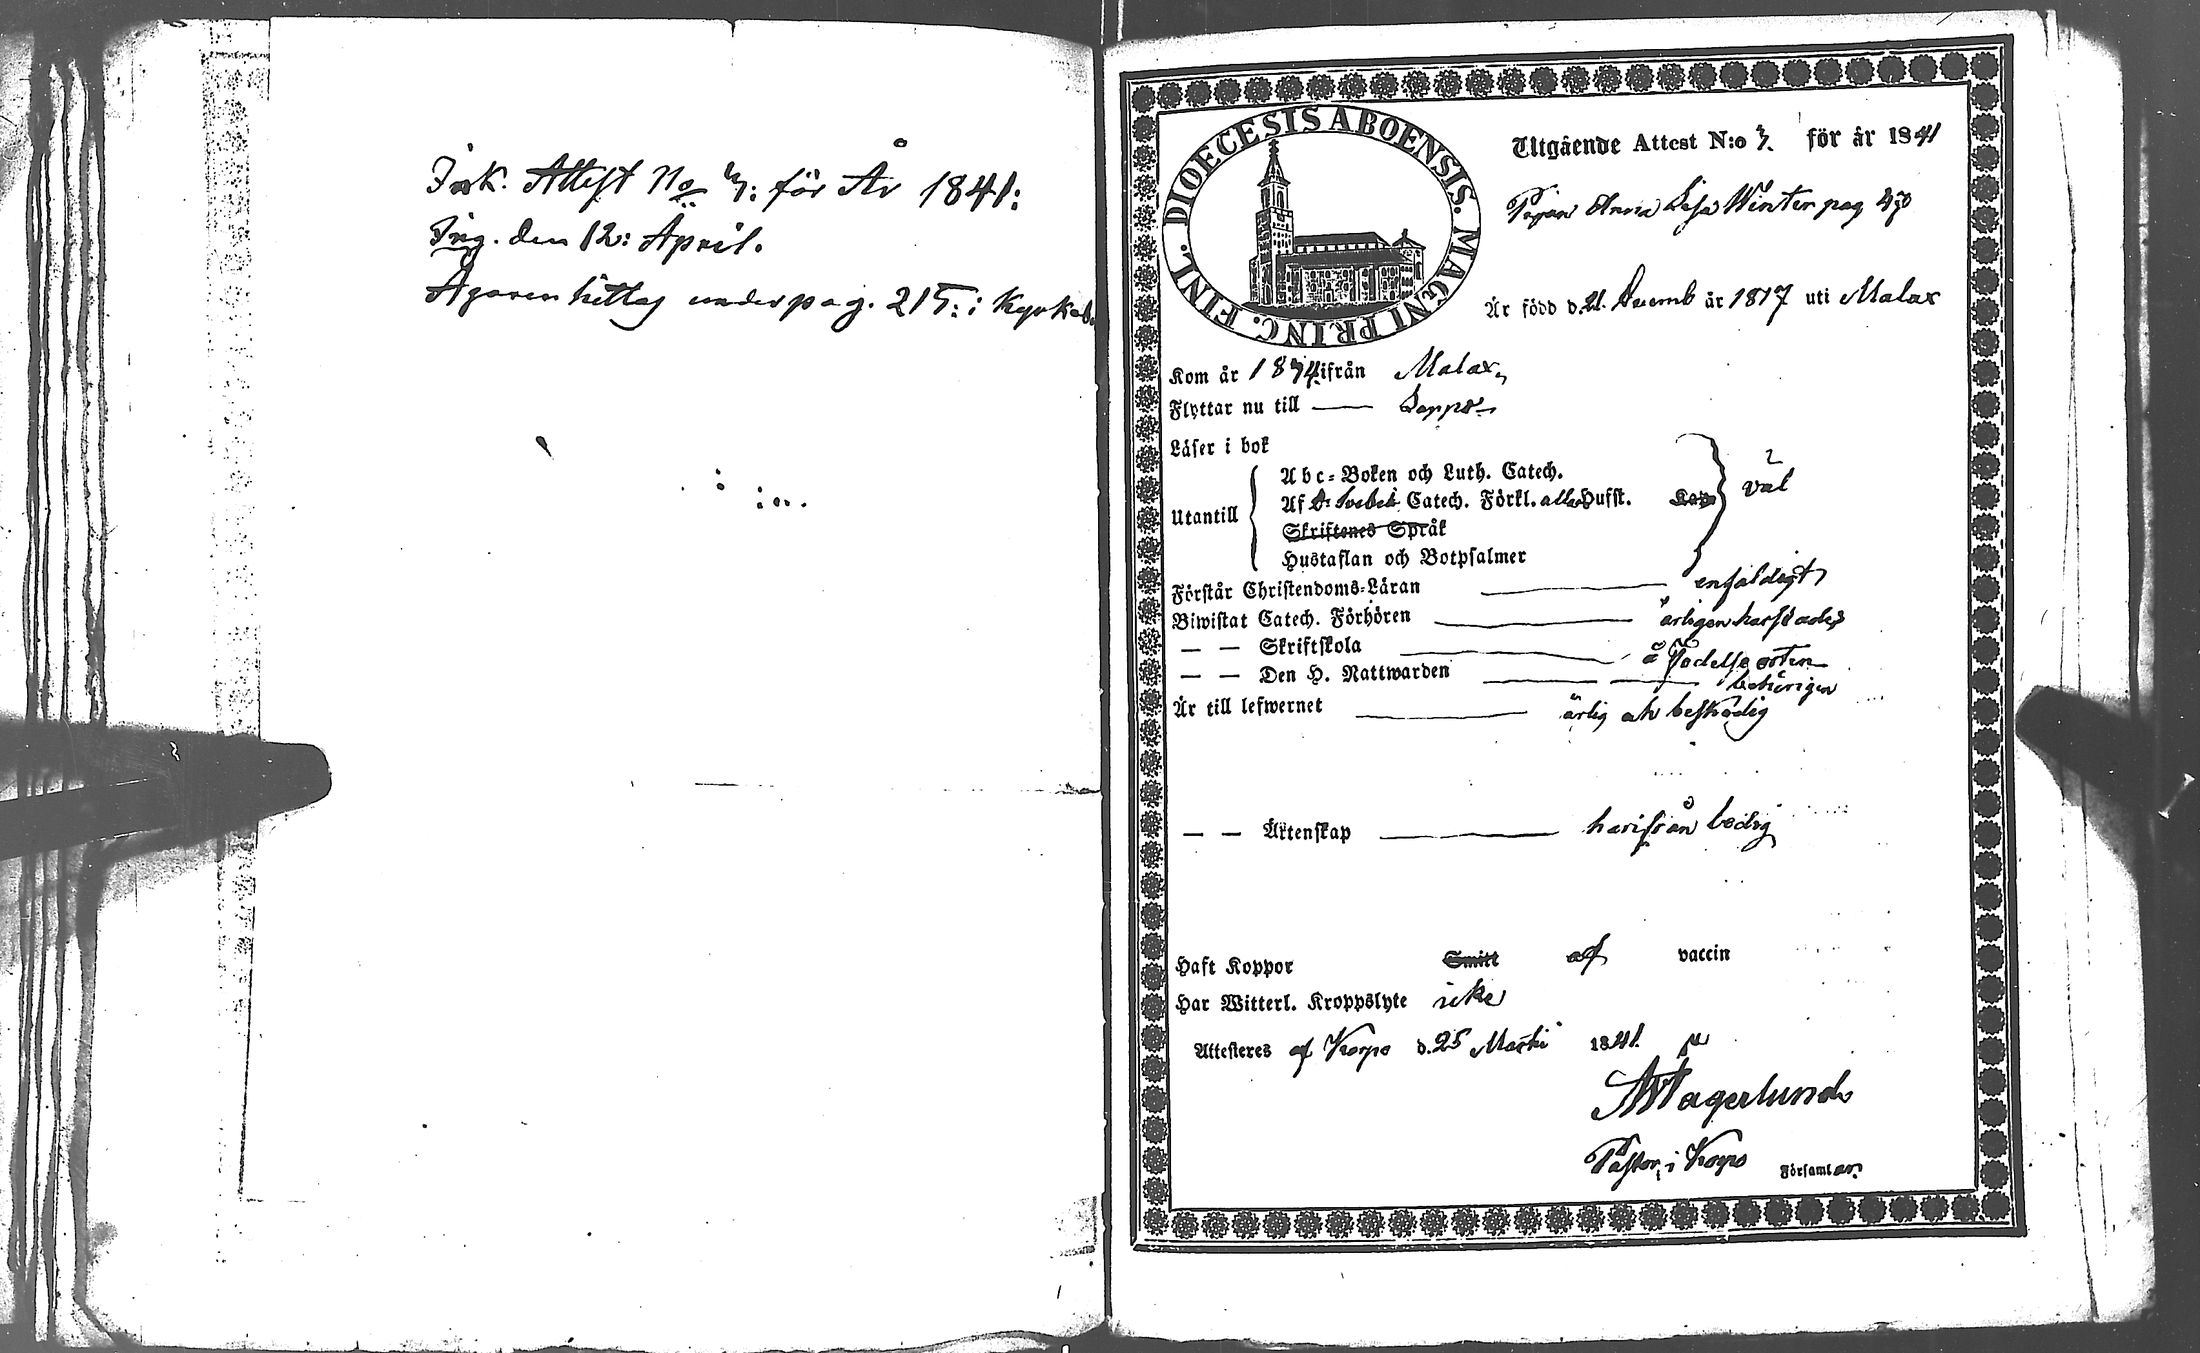 Ink. Attest No 3: för År 1841:
Ing. den 12: April.
Ägaren hittas under pag. 215: i Kyrkob.
DIOECESIS ABOENSIS. MAGNI PRINC. FINL.
Utgående Attest N:o 3. för år 1841
Pigan Anna Lisa Winter pag
Är född d. 21. år 1817 uti Malax
Kom år ifrån Malax,
Flyttar nu till — Lappo
Läser i bok
Abc-Boken och Luth. Catech.
Utantill
Af D. Svebeli Catech. Förkl. alla Hufst. Kap
väl
Skriftenes Språk
Hustaflan och Botpsalmer
Förstår Christendoms-Läran — enfaldigt
Biwistat Catech. Förhören — årligen härstädes
— — Skriftskola — å Födelse orten
— — Den H. Nattwarden — — behörigen
Är till lefwernet — ärlig och beskedlig
— — Äktenskap — härifrån ledig
Haft Koppor Smitt af vaccin
Har Witterl. Kroppslyte icke
Attesteras af Korpo d. 25 Martii 1841.
Wagerlund
Pastor i Korpo Församl